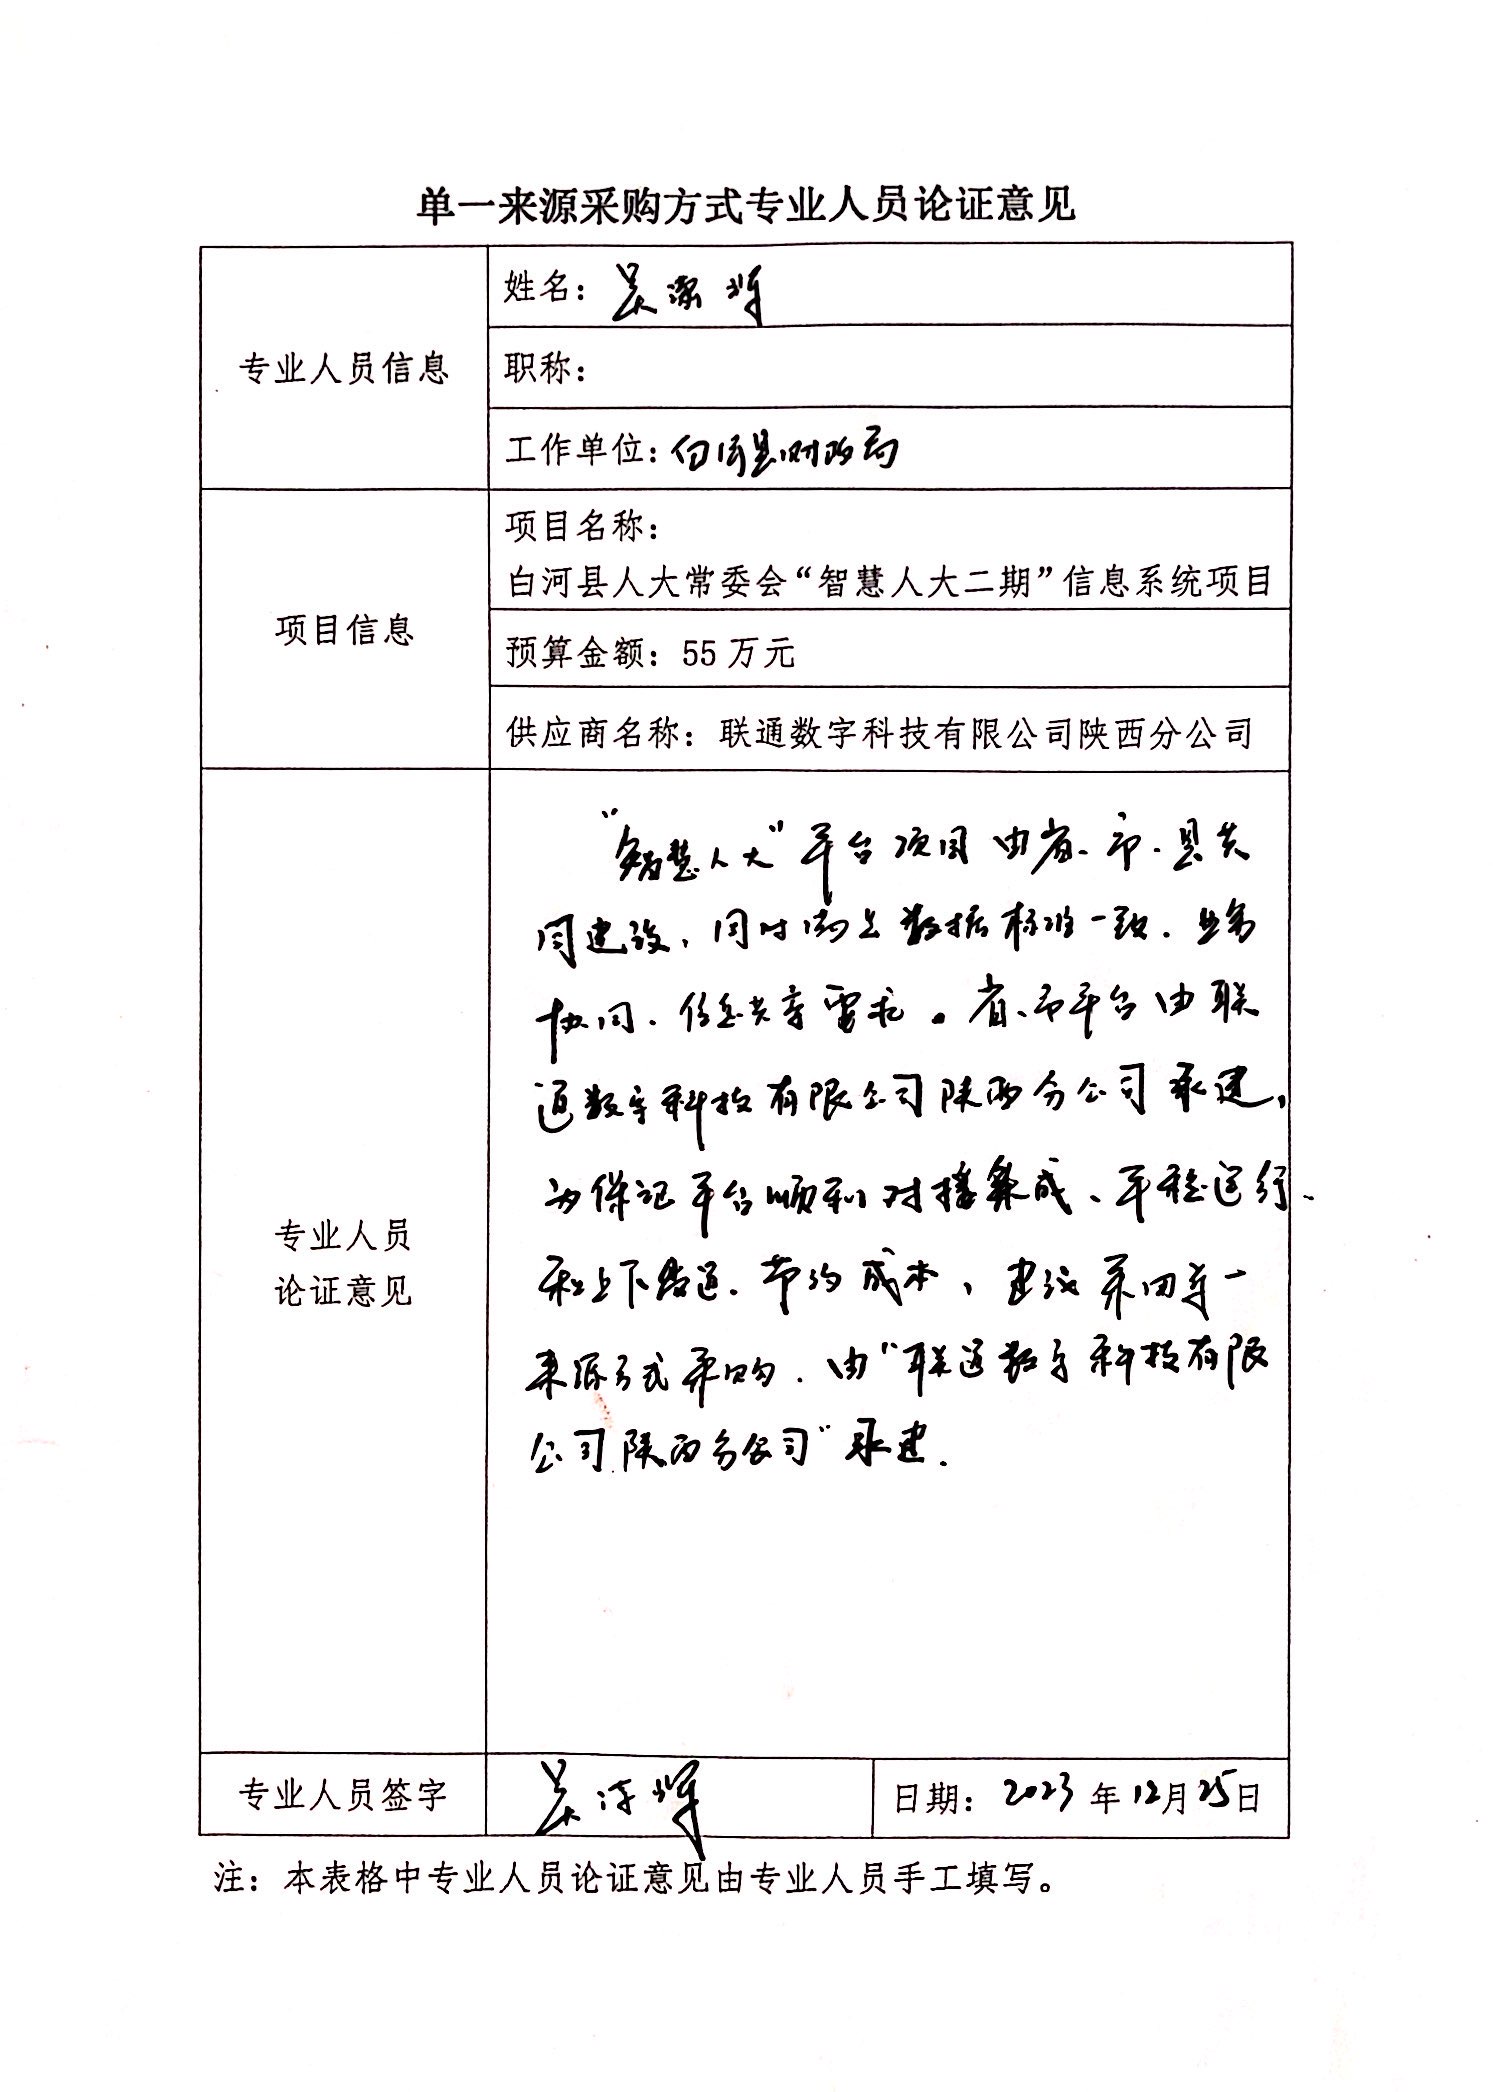 单一来源采购方式专业人员论证意见
专业人员信息
姓名：吴 辉
职称：
工作单位：白河县财政局
项目信息
项目名称：
白河县人大常委会“智慧人大二期”信息系统项目
预算金额：55万元
供应商名称：联通数字科技有限公司陕西分公司
专业人员
论证意见
“智慧人大”平台项目由省、市、县共
同建设，同时满足数据标准一致、业务
协同、信息共享需求。省、市平台由联
通数字科技有限公司陕西分公司承建，
为保证平台顺利对接集成、平稳运行、
和上下贯通、节约成本，建议采用单一
来源方式采购，由“联通数字科技有限
公司陕西分公司”承建.
专业人员签字
吴 辉
日期：2023年12月25日
注：本表格中专业人员论证意见由专业人员手工填写。